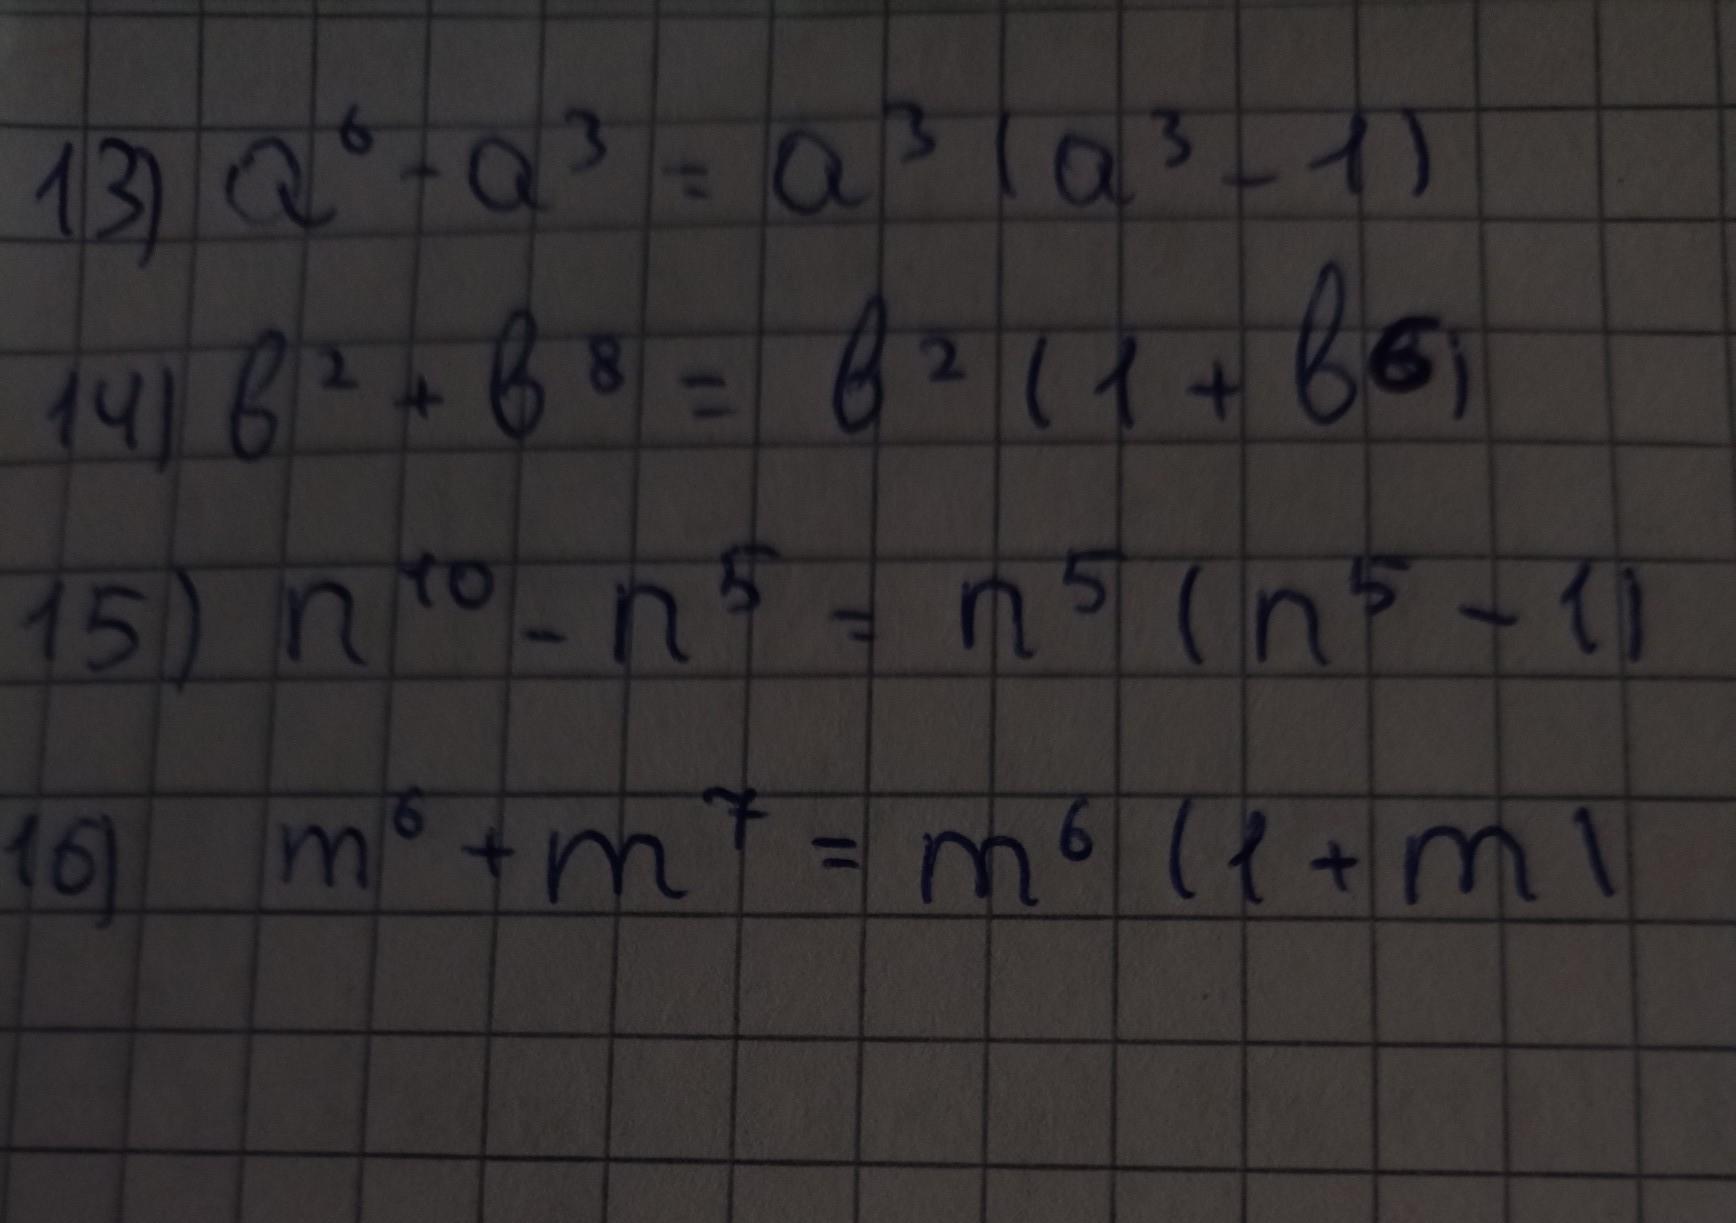 13) a⁶ - a³ = a³ (a³ - 1)
14) b² + b⁸ = b² (1 + b⁶)
15) n¹⁰ - n⁵ = n⁵ (n⁵ - 1)
16) m⁶ + m⁷ = m⁶ (1 + m)